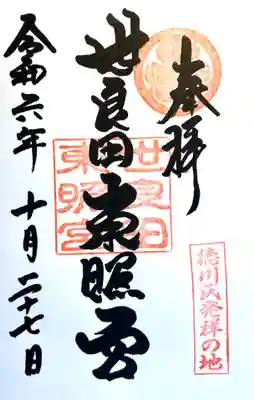 奉拝
世良田東照宮
世良田
東照宮
徳川氏発祥の地
令和六年 十月二十七日